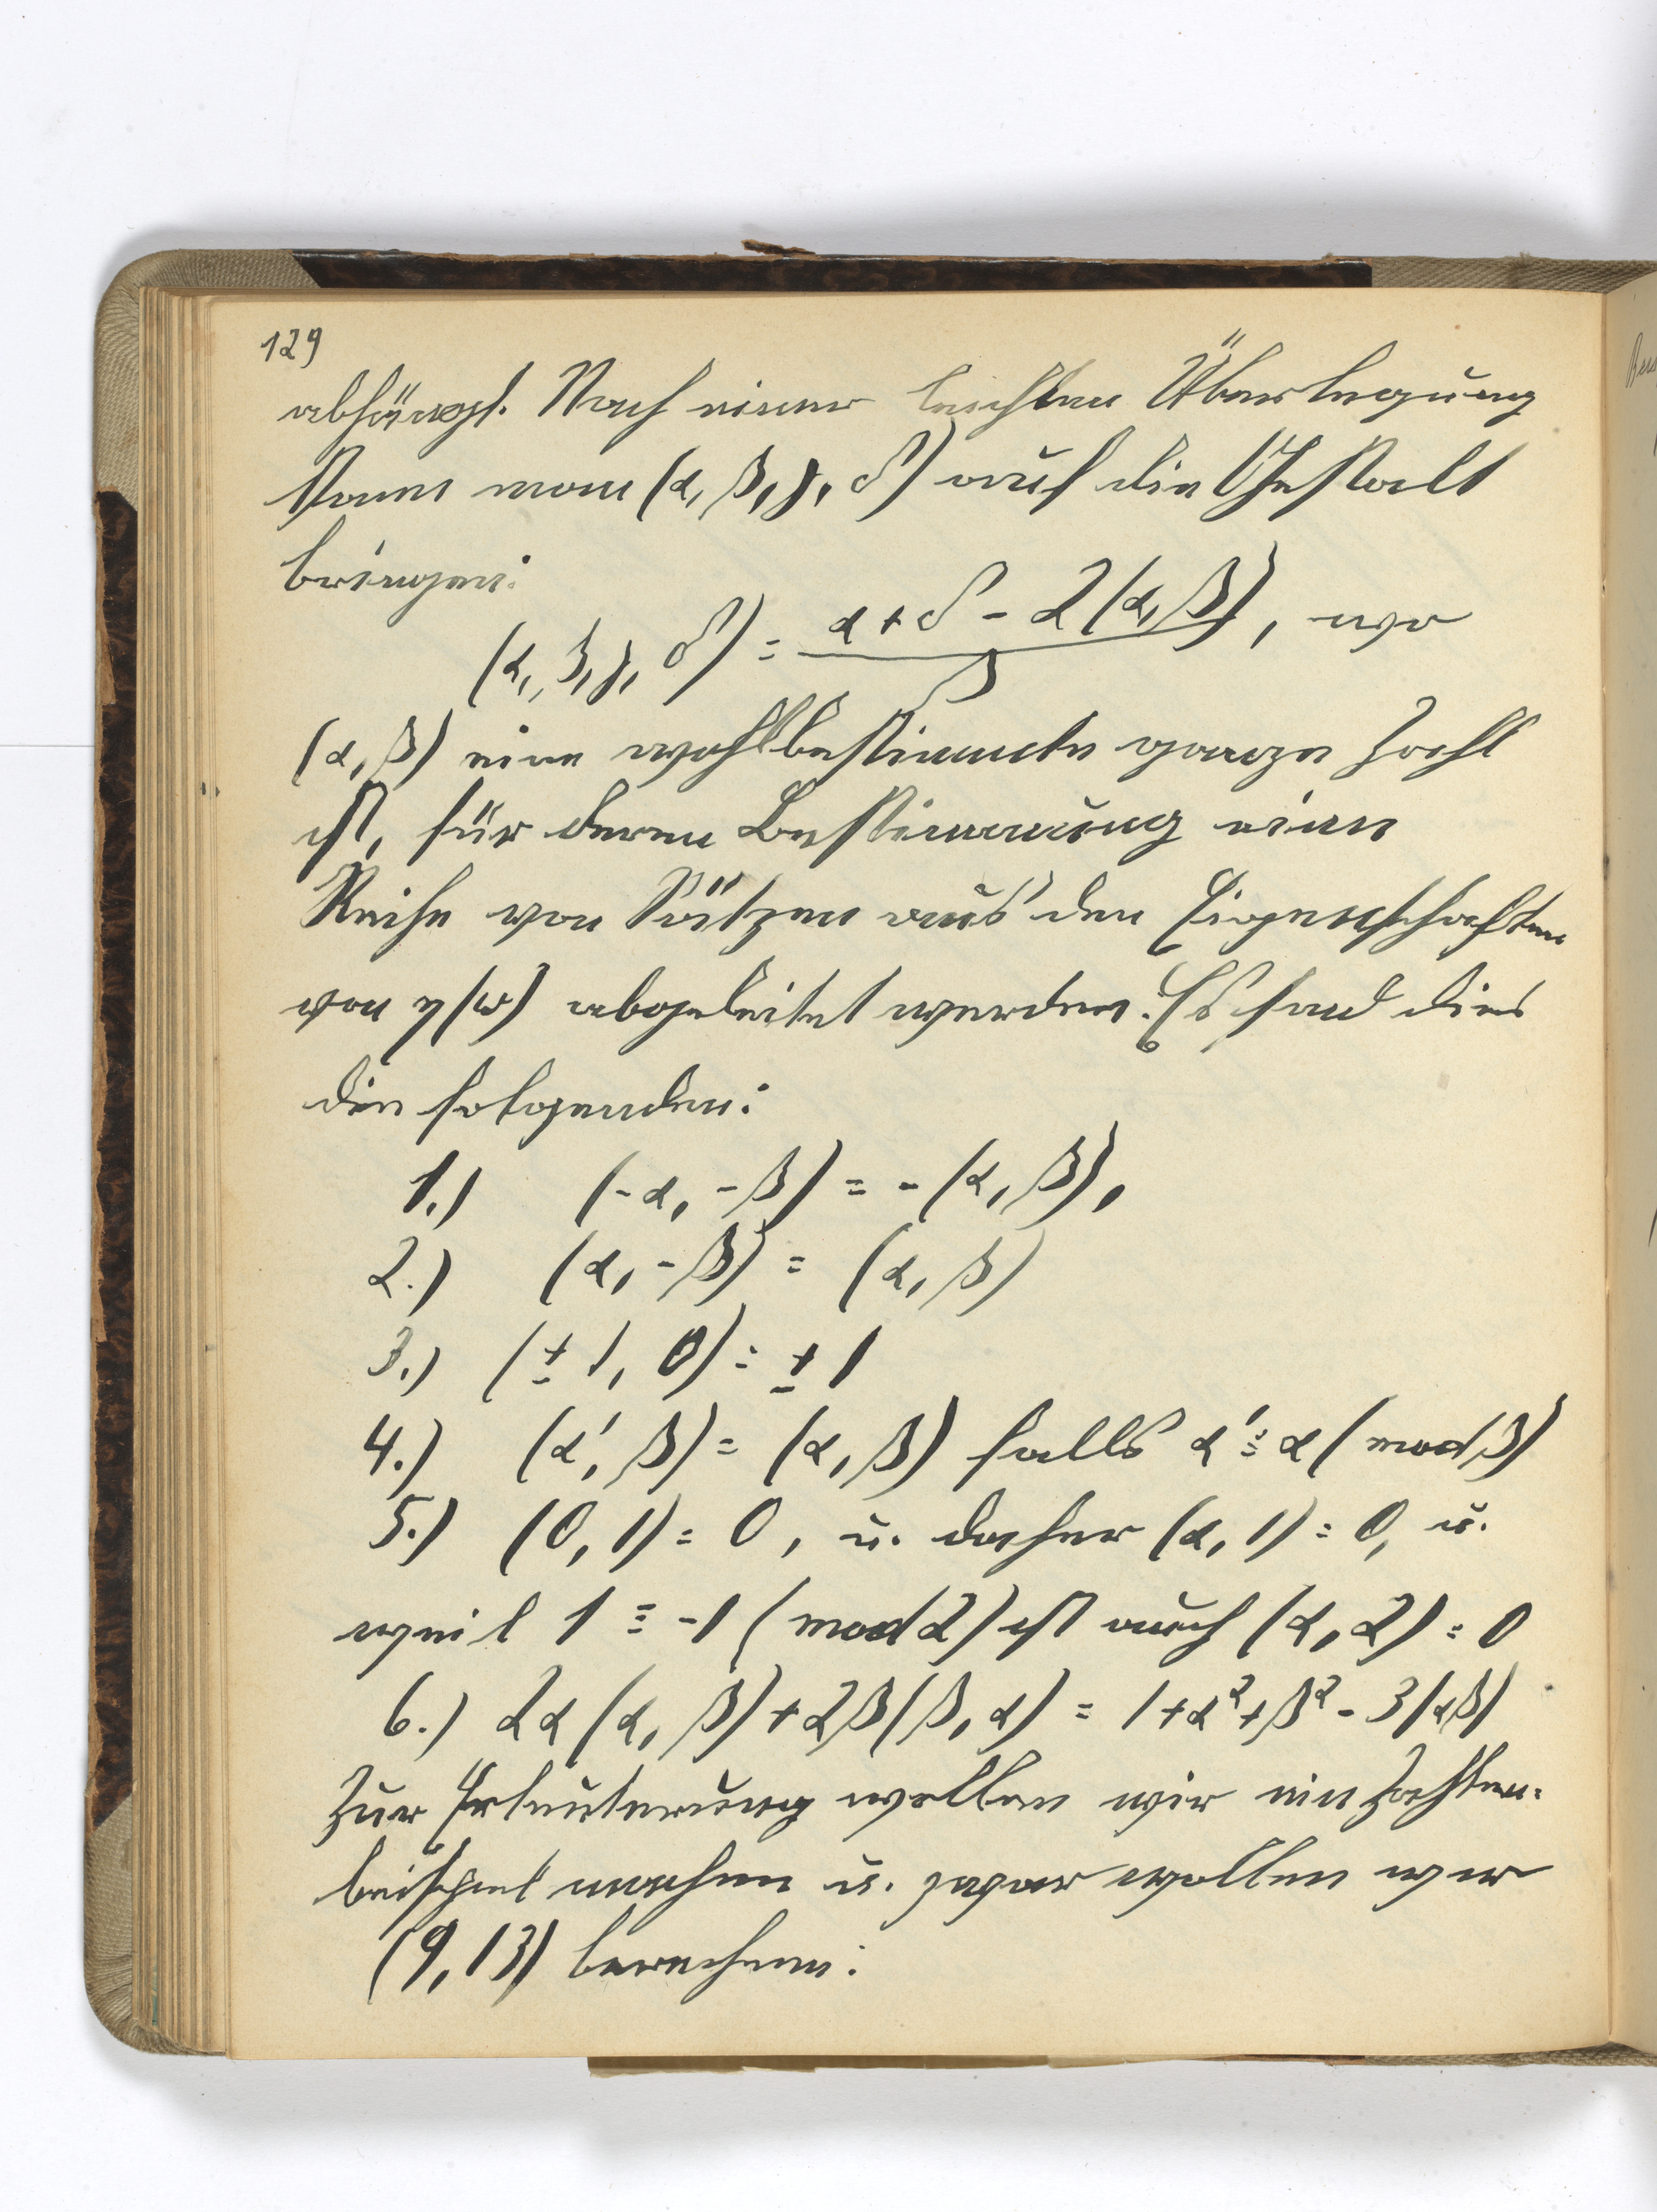 129
abhängt. Nach einer leichten Überlegung
kann man (α, β, γ, δ) auf die Gestalt
bringen:
(α, β, γ, δ) = \frac{α + δ - 2(α, β)}{β}, wo
(α, β) eine wohlbestimmte ganze Zahl
ist, für deren Bestimmung eine
Reihe von Sätzen aus den Eigenschaften
von η(ω) abgeleitet werden. Es sind dies
die folgenden:
1.) (-α, -β) = -(α, β),
2.) (α, -β) = (α, β)
3.) (± 1, 0) = ± 1
4.) (α', β) = (α, β) falls α' ≡ α (mod β)
5.) (0, 1) = 0, u. daher (α, 1) = 0, u.
weil 1 ≡ -1 (mod 2) ist auch (α, 2) = 0
6.) 2α(α, β) + 2β(β, α) = 1 + α² + β² - 3|αβ|
Zur Erleuterung wollen wir ein Zahlen-
beispiel machen u. zwar wollen wir
(9, 13) berechnen: